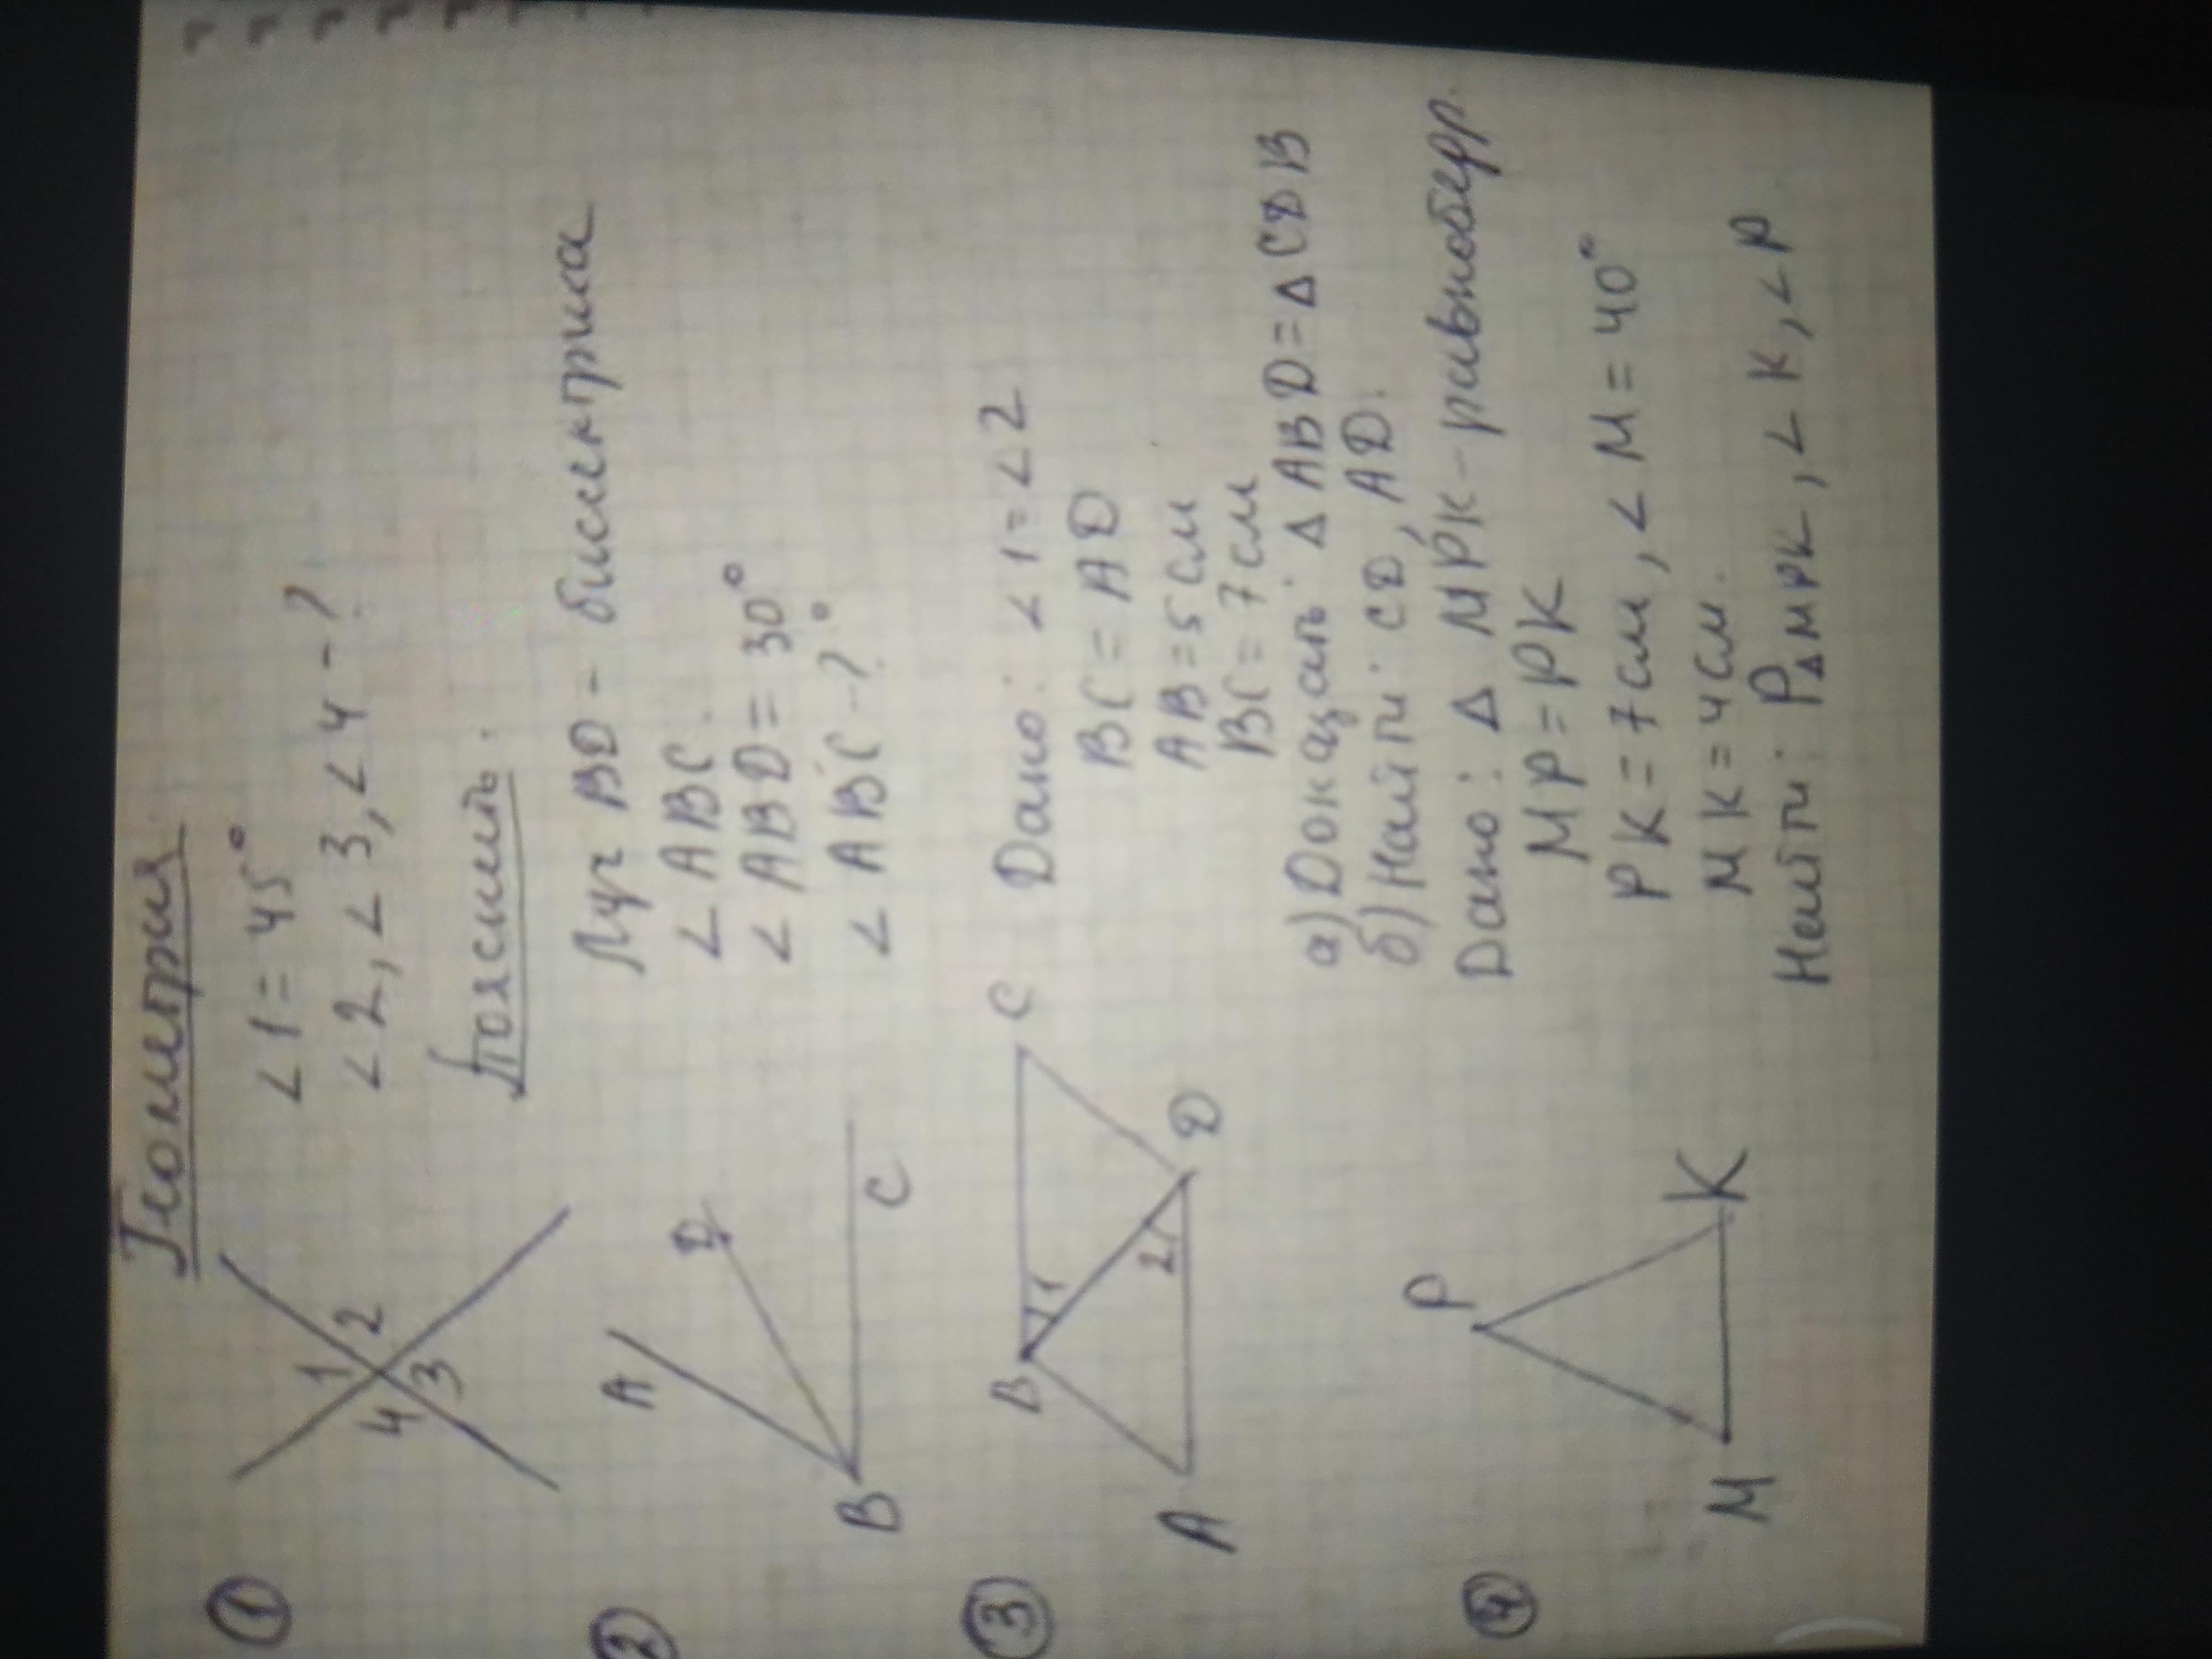 Геометрия
①
1
2
3
4
∠1=45°
∠2,∠3,∠4-?
Пояснить.
②
A
D
B
C
Луч BD - биссектриса
∠ABC.
∠ABD=30°
∠ABC-?
③
B
C
1
2
A
D
Дано: ∠1=∠2
BC=AD
AB=5см
BC=7см
а) Доказать: Δ ABD=Δ CDB
б) Найти: CD, AD.
④
P
M
K
Дано: Δ MPK-равнобедр.
MP=PK
PK=7см, ∠M=40°
MK=4см.
Найти: PΔMPK, ∠K, ∠P.